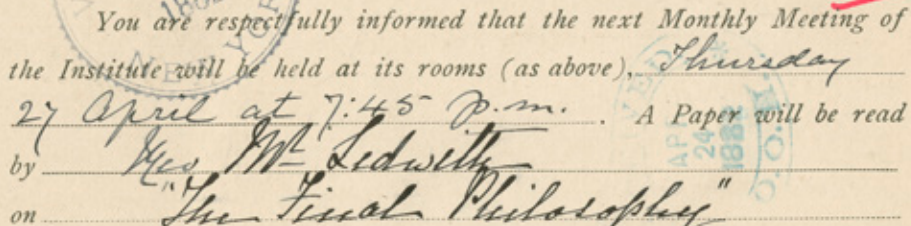 You are respectfully informed that the next Monthly Meeting of
the Institute will be held at its rooms (as above), Thursday
27 April at 7:45 p.m. . A Paper will be read
by Rev Mr. Ledwith
on "The Final Philosophy"
APR
24